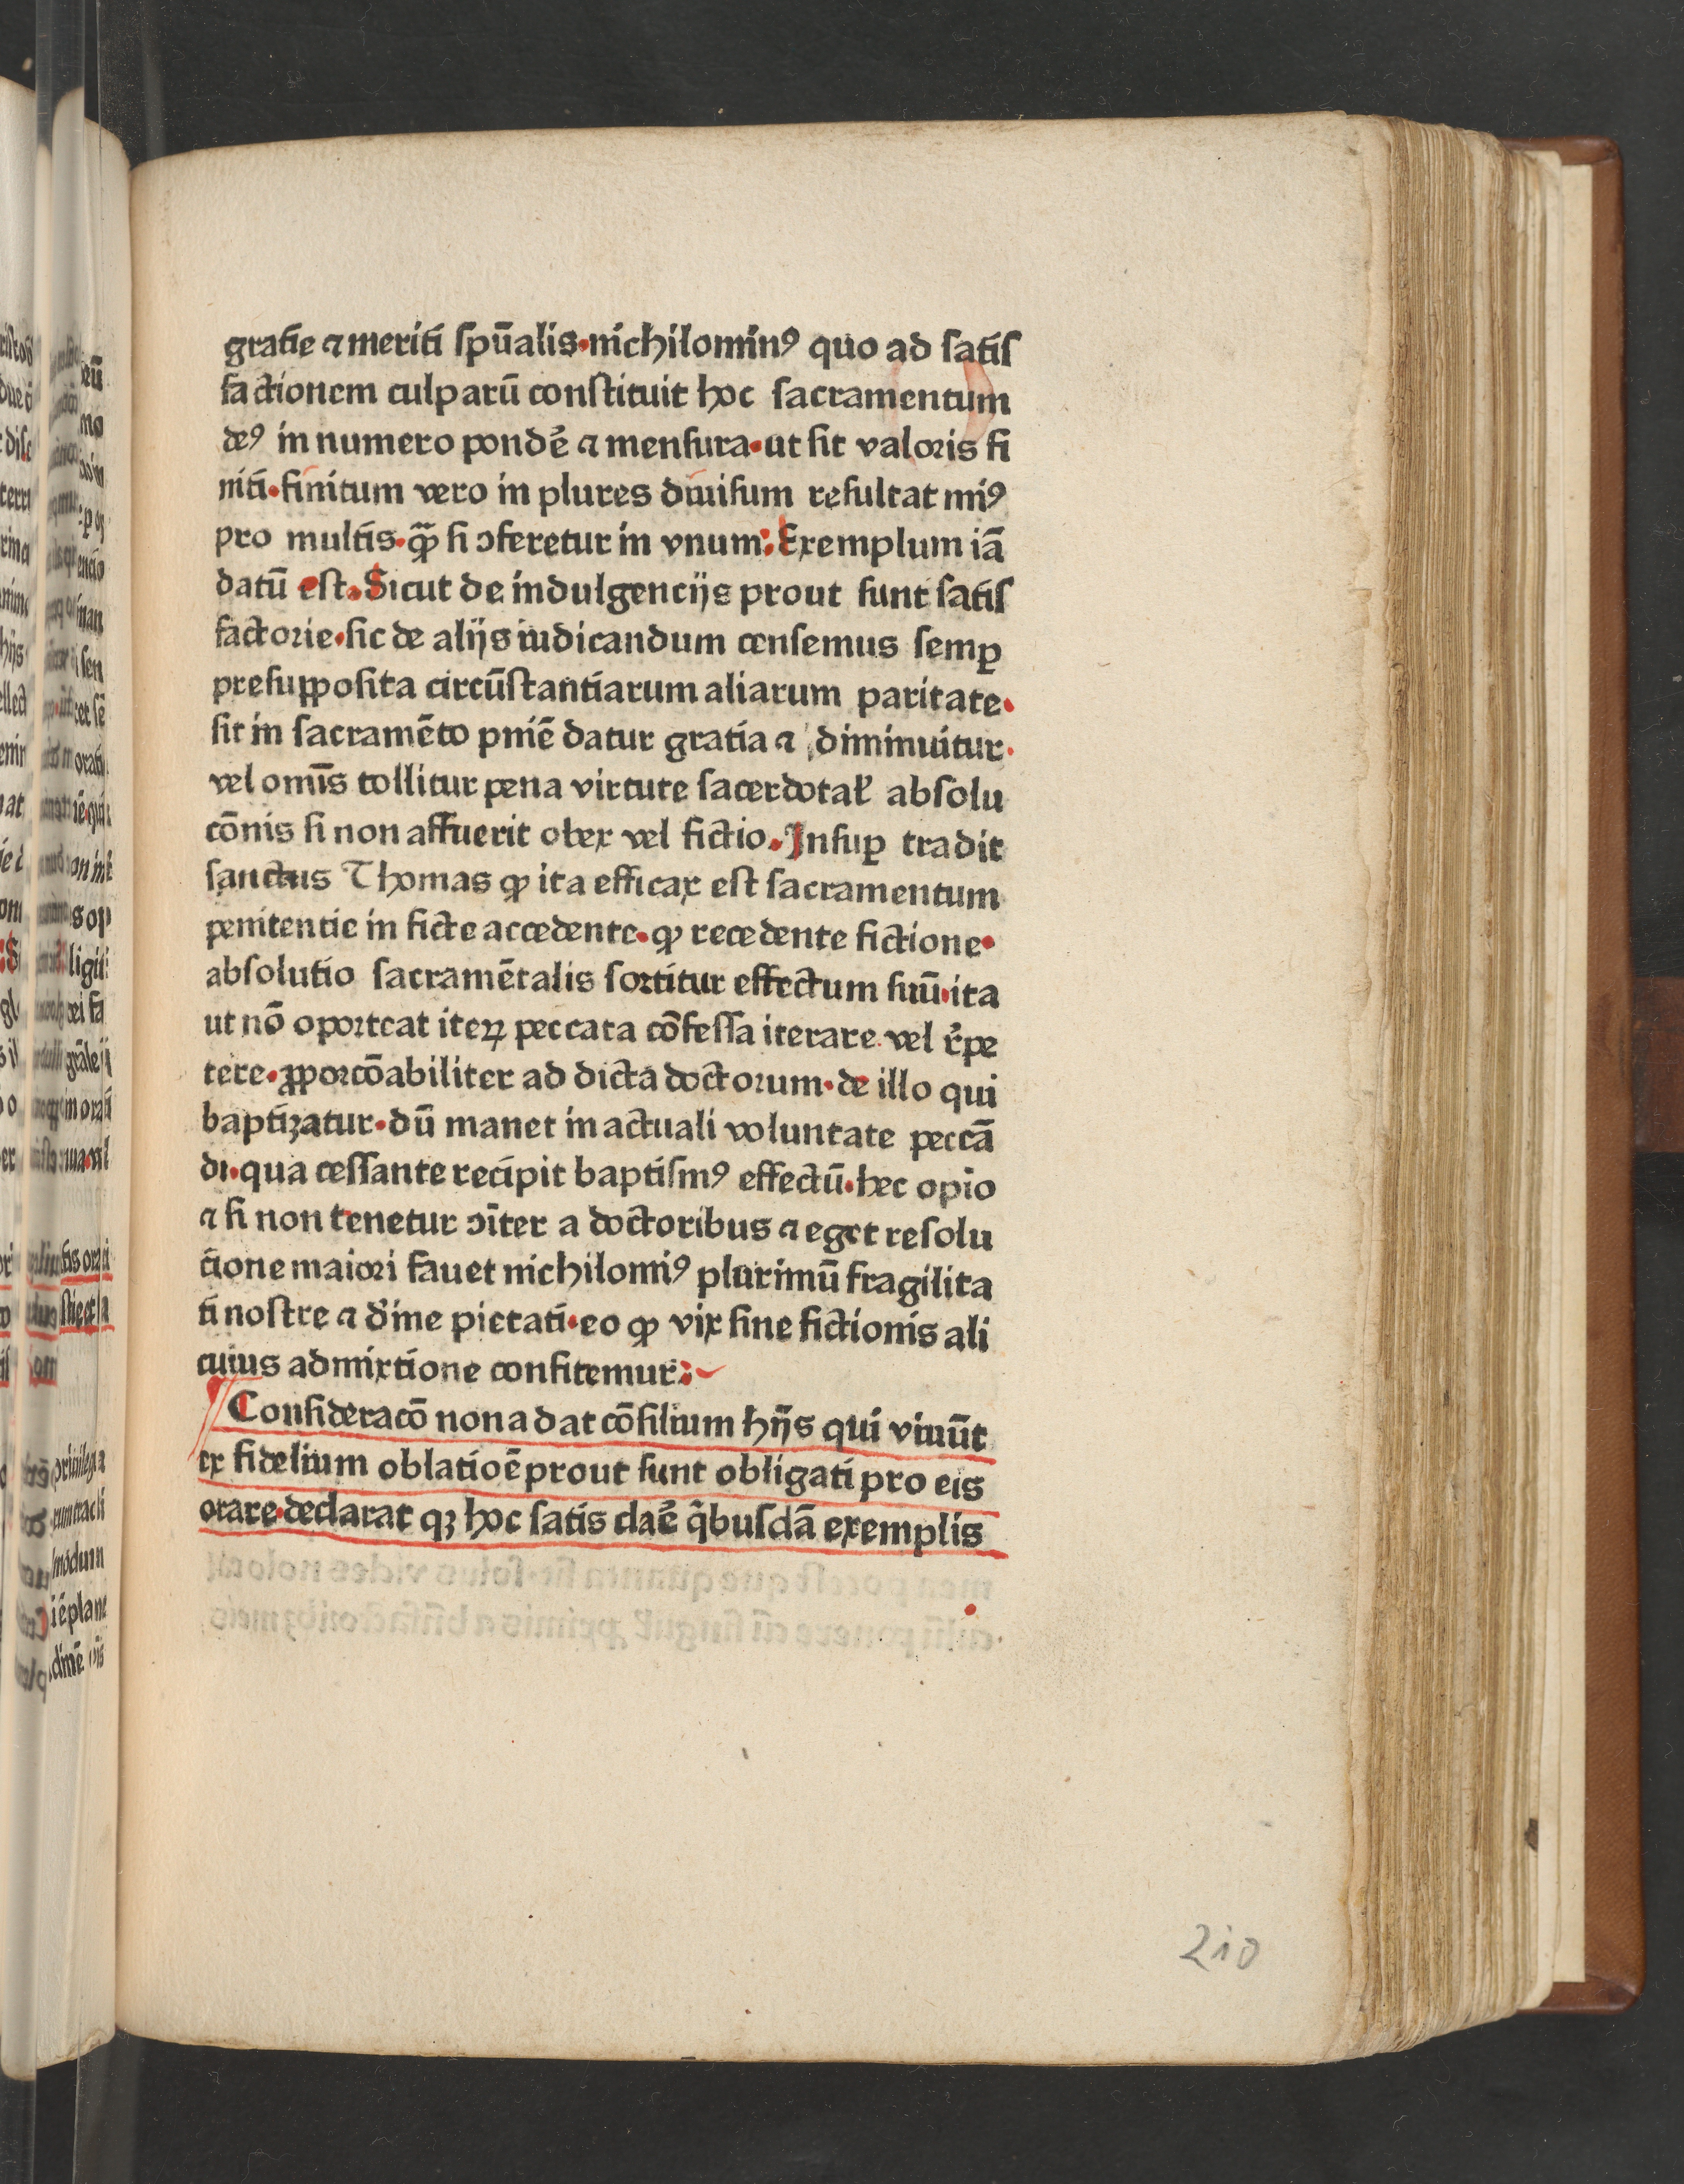 gratie ⁊ meriti sp̄ualis·nichilominꝰ quo ad satis
factionem culparū constituit hoc sacramentum
deꝰ in numero pondẽ ⁊ mensura·ut sit valoris fi
niti·finitum vero in plures diuisum resultat minꝰ
pro multis·qꝫ̄ si ↄferetur in vnum: Exemplum iā
datū est. Sicut de indulgencijs prout sunt satis
factorie·sic de alijs iudicandum censemus semꝑ
presupposita circūstantiarum aliarum paritate.
sit in sacramēto pniē datur gratia ⁊ diminuitur.
vel omīs tollitur pena virtute sacerdotal̃ absolu
cōnis si non affuerit obex vel fictio. Insuꝑ tradit
sanctus Thomas ꝙ ita efficax est sacramentum
penitentie in ficte accedente·ꝙ recedente fictione·
absolutio sacramētalis sortitur effectum suū·ita
ut nō oporteat iteꝝ peccata cōfessa iterare vel r̃pe
tere·ꝓporcōabiliter ad dicta doctorum·de illo qui
baptizatur·dū manet in actuali voluntate peccā
di·qua cessante recipit baptismꝰ effectū·hec opīo
⁊ si non tenetur ↄīter a doctoribus ⁊ eget resolu
tione maiori fauet nichilomīꝰ plurimū fragilita
ti nostre ⁊ diīne pietati·eo ꝙ vix sine fictionis ali
cuius admixtione confitemur:
Consideracō nona dat cōsilium hijs qui viuūt
ex fidelium oblatiōe prout sunt obligati pro eis
orare·declarat qꝫ hoc satis claẽ q̄busdā exemplis
210